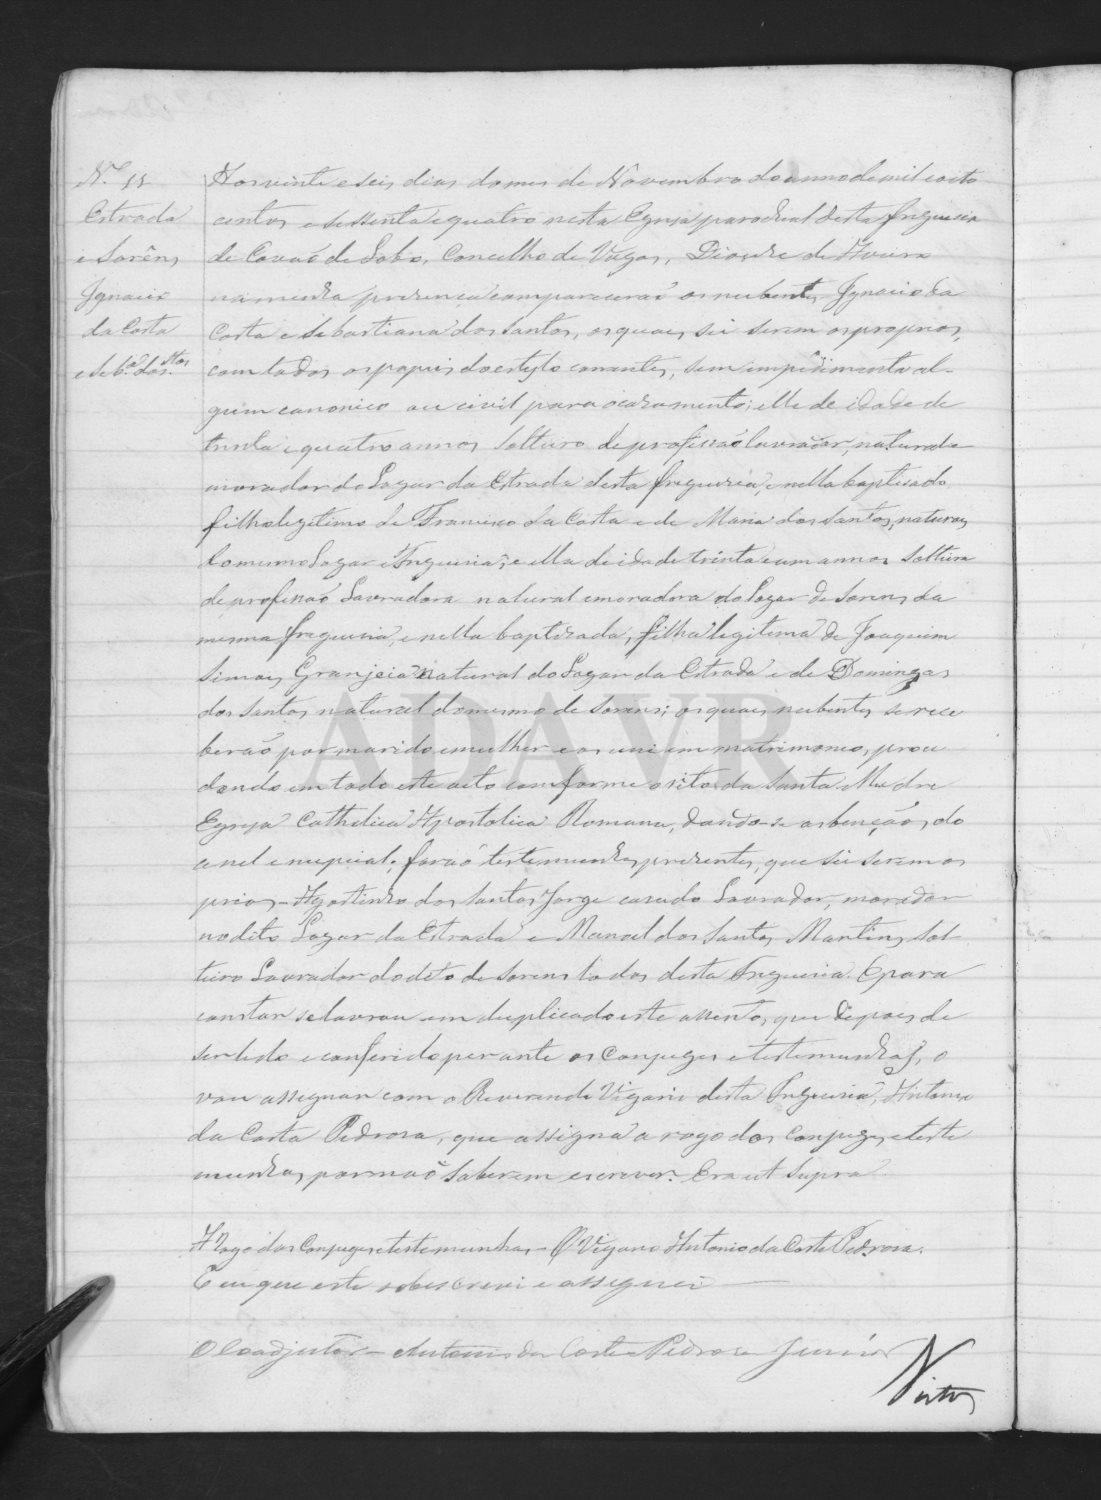 Nº 11
Estrada
e Sorẽns
Ignacio
da Costa
e Seb.ª dos Stos
Aos vinte e seis dias do mes de Novembro do anno de mil e oito
centos e sessenta e quatro nesta Egreja parochial desta freguesia
de Covaõ de Lobo, Concelho de Vagos, Diocese de Aveiro
na minha presença compareceraõ os nubentes Ignacio da
Costa e Sebastiana dos Santos, os quaes sei serem os proprios,
com todos os papeis do estylo correntes, sem impedimento al-
gum canonico ou civil para o casamento; elle de idade de
trinta e quatro annos solteiro de profissaõ lavrador, natural e
morador do Lugar da Estrada desta freguesia, e nella baptisado
filho legitimo de Francisco da Costa e de Maria dos Santos, naturaes
do mesmo Lugar e Freguesia; e ella de idade trinta e um annos solteira
de profissaõ Lavradora natural e moradora do Lugar de Sorens da
mesma freguesia, e nella baptizada, filha legitima de Joaquim
Simoes Granjeia natural do Lugar da Estrada e de Domingas
dos Santos natural do mesmo de Sorens; os quaes nubentes se rece
beraõ por marido e mulher e os uni em matrimonio, proce
dendo em todo este acto conforme o rito da Santa Madre
Egreja Catholica Apostolica Romana, dando-se as bençaõs do
anel e nupcial; foraõ testemunhas presentes, que sei serem os
prios - Agostinho dos Santos Jorge casado Lavrador, morador
no dito Lugar da Estrada e Manoel dos Santos Martins sol
teiro Lavrador do dito de Sorens todos desta Freguesia. E para
constar se lavrou em duplicado este assento, que depois de
ser lido e conferido perante os Conjuges e testemunhas, o
vou assignar com o Reverendo Vigario desta Freguesia, Antonio
da Costa Pedrosa, que assigna a rogo dos Conjuges e teste
munhas por naõ saberem escrever. Era ut supra
A Rogo dos Conjuges e testemunhas - O Vigario Antonio da Costa Pedrosa.
E eu que este sobescrevi e assignei
O Coadjutor - Antonio da Costa Pedrosa Junior
Visto
ADAVR